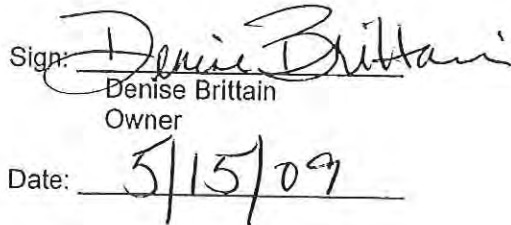 Sign: Denise Brittain
Denise Brittain
Owner
Date: 5/15/09